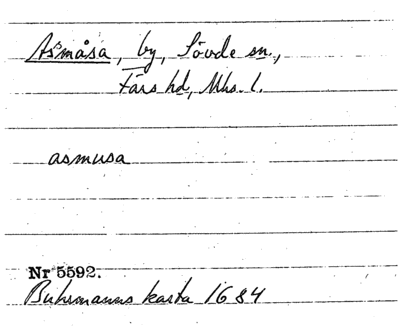 Åsmåsa, by, Sövde sn.,
Färs hd, Mhs. l.
asmusa
Nr 5592.
Buhrmanns karta 1684